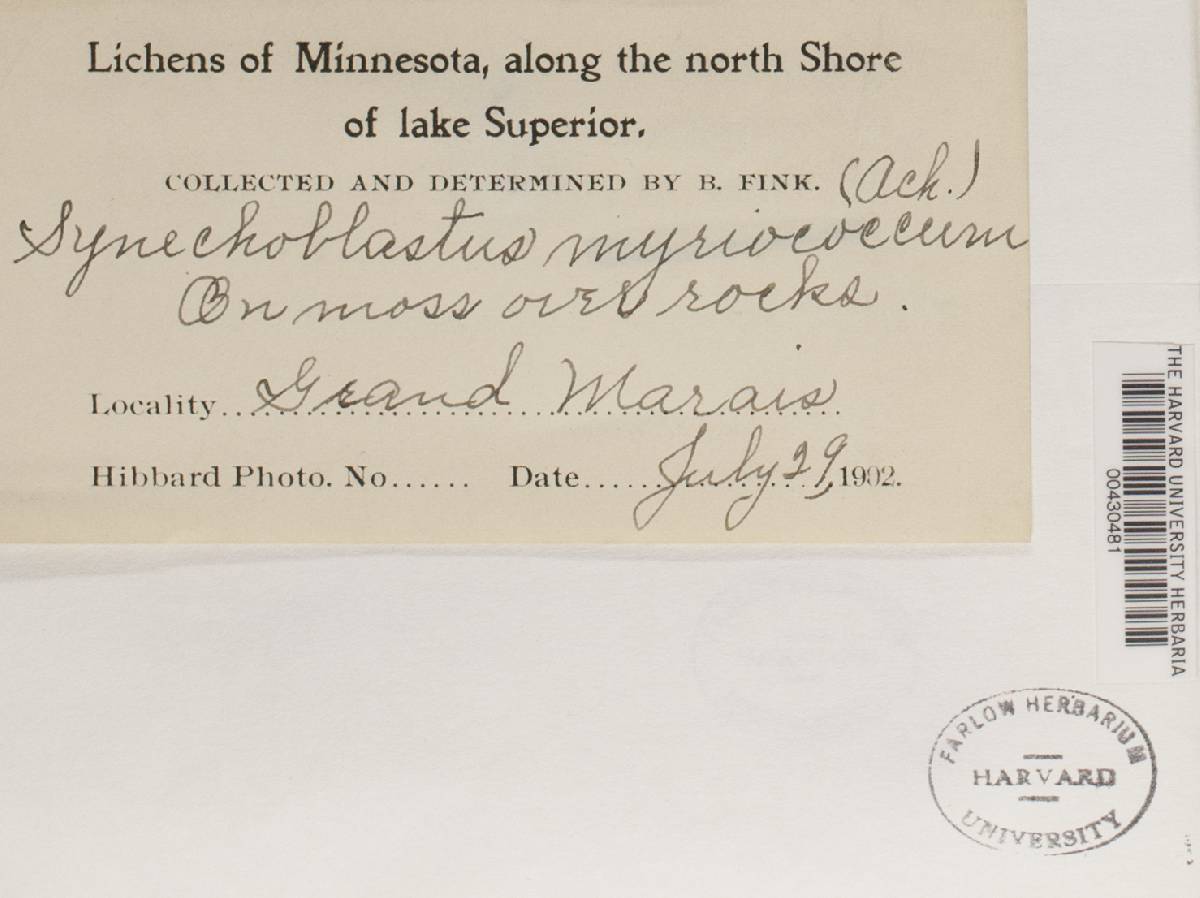 Lichens of Minnesota, along the north Shore
of lake Superior.
COLLECTED AND DETERMINED BY B. FINK. (Ach.)
Synechoblastus myriococcum
On moss over rocks.
Locality.. Grand Marais
Hibbard Photo. No...... Date...... July 29, 1902.
THE HARVARD UNIVERSITY HERBARIA
00430481
FARLOW HERBARIUM
HARVARD
UNIVERSITY